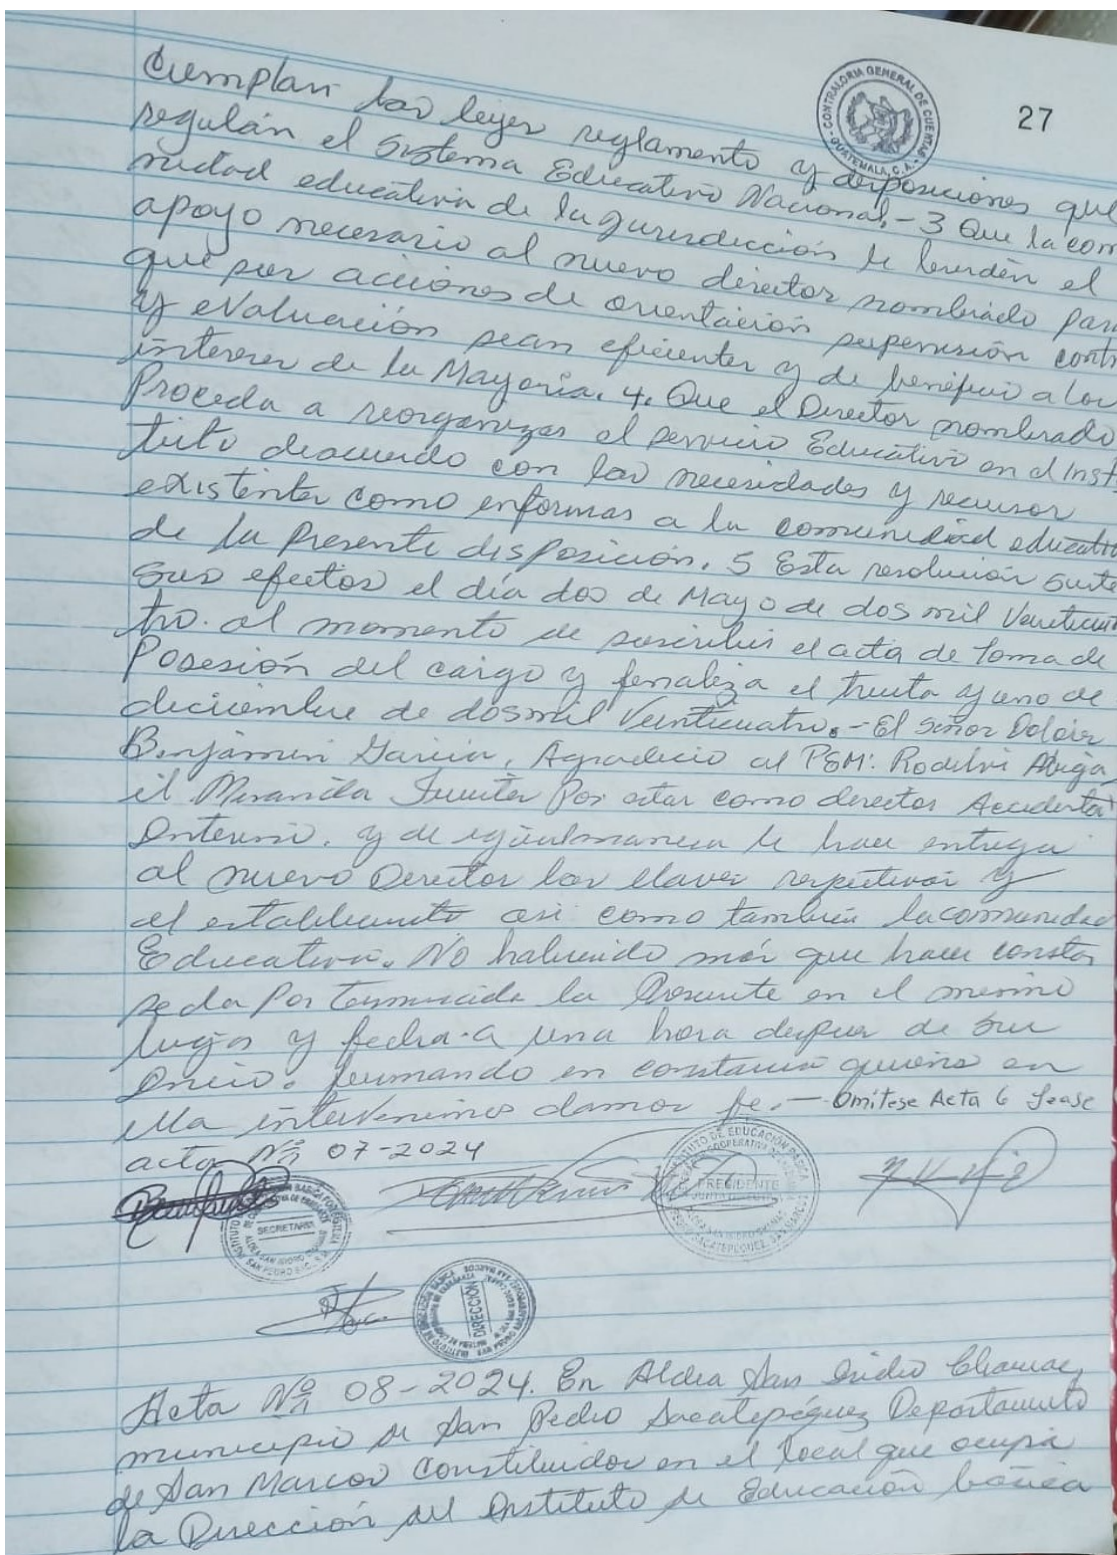 CONTRALORIA GENERAL DE CUENTAS
GUATEMALA, C.A.
27
Cumplan las leyes reglamento y disposiciones que
regulán el sistema Educativo Nacional,- 3 Que la com
nidad educativa de la jurisdicción le brinden el
apoyo necesario al nuevo director nombrado para
que sus acciones de orientación supervisión contr
y evaluación sean eficientes y de beneficio a los
intereses de la Mayoria. 4. Que el Director nombrado
Proceda a reorganizar el servicio Educativo en el Inst
tuto deacuerdo con las necesidades y recursos
existentes como informar a la comunidad educativa
de la Presente disposición. 5 Esta resolución surte
sus efectos el día dos de Mayo de dos mil Veinticua
tro. al momento de suscribir el acta de toma de
Posesión del cargo y finaliza el treita y uno de
diciciembre de dosmil Veinticuatro.- El señor
Benjamin Garcia, Agradecio al PEM: Rodelvi
il Miranda Fuentes Por estar como director Accidental
Interino. y de igualmanera le hace entrega
al nuevo Director las llaves respectivas y
el establecimiento asi como también lacomunidad
Educativa. No habiendo más que hacer constar
se da Por terminada la Presente en el mismo
lugar y fecha a una hora despues de su
Inicio. firmando en constancia quienes en
ella intervenimos damos fe.- Omitese Acta 6 Lease
acta Nº 07-2024
SECRETARIA
INSTITUTO DE EDUCACIÓN BASICA
PRESIDENTE
DIRECCIÓN
Acta Nº 08-2024. En Aldea San Isidro Chamac,
municipio de San Pedro Sacatepéquez Departamento
de San Marcos Constituidos en el local que ocupa
la Dirección del Instituto de Educación básica